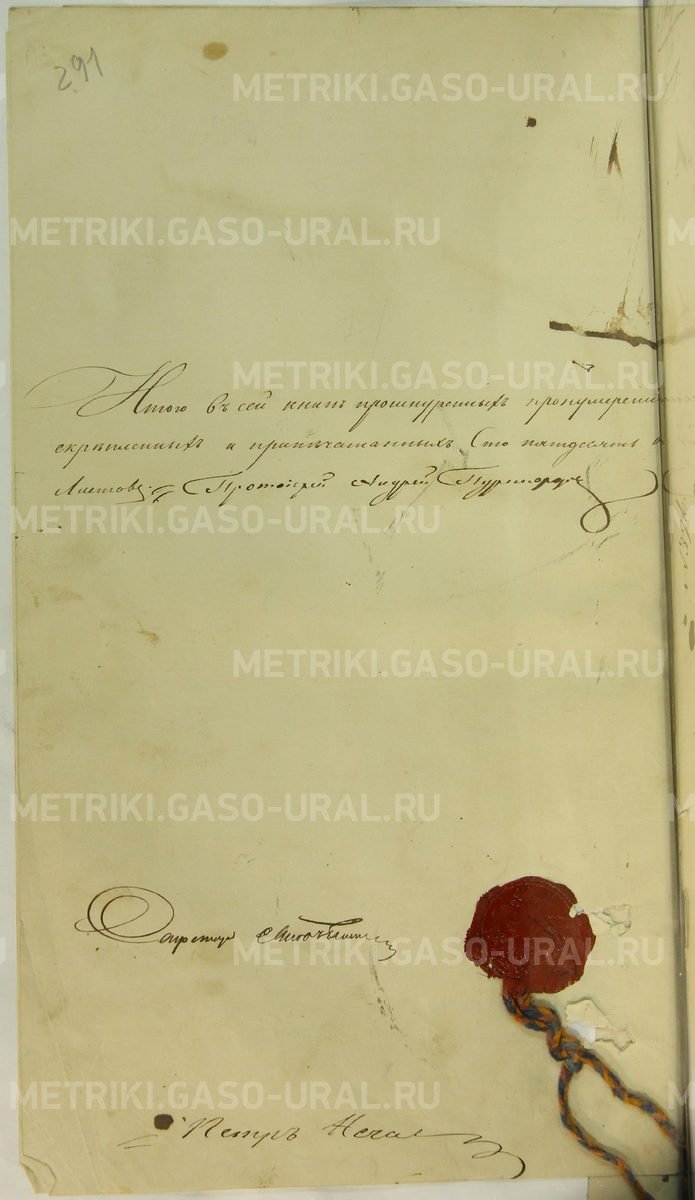 291
Итого въ сей книгѣ прошнуренныхъ пронумерен
скрѣпленныхъ и припечатанныхъ Сто пятдесятъ
Листовъ. Протоіерей Андрей
Секретарь
Петръ
METRIKI.GASO-URAL.RU
METRIKI.GASO-URAL.RU
METRIKI.GASO-URAL.RU
METRIKI.GASO-URAL.RU
METRIKI.GASO-URAL.RU
METRIKI.GASO-URAL.RU
METRIKI.GASO-URAL.RU
METRIKI.GASO-URAL.RU